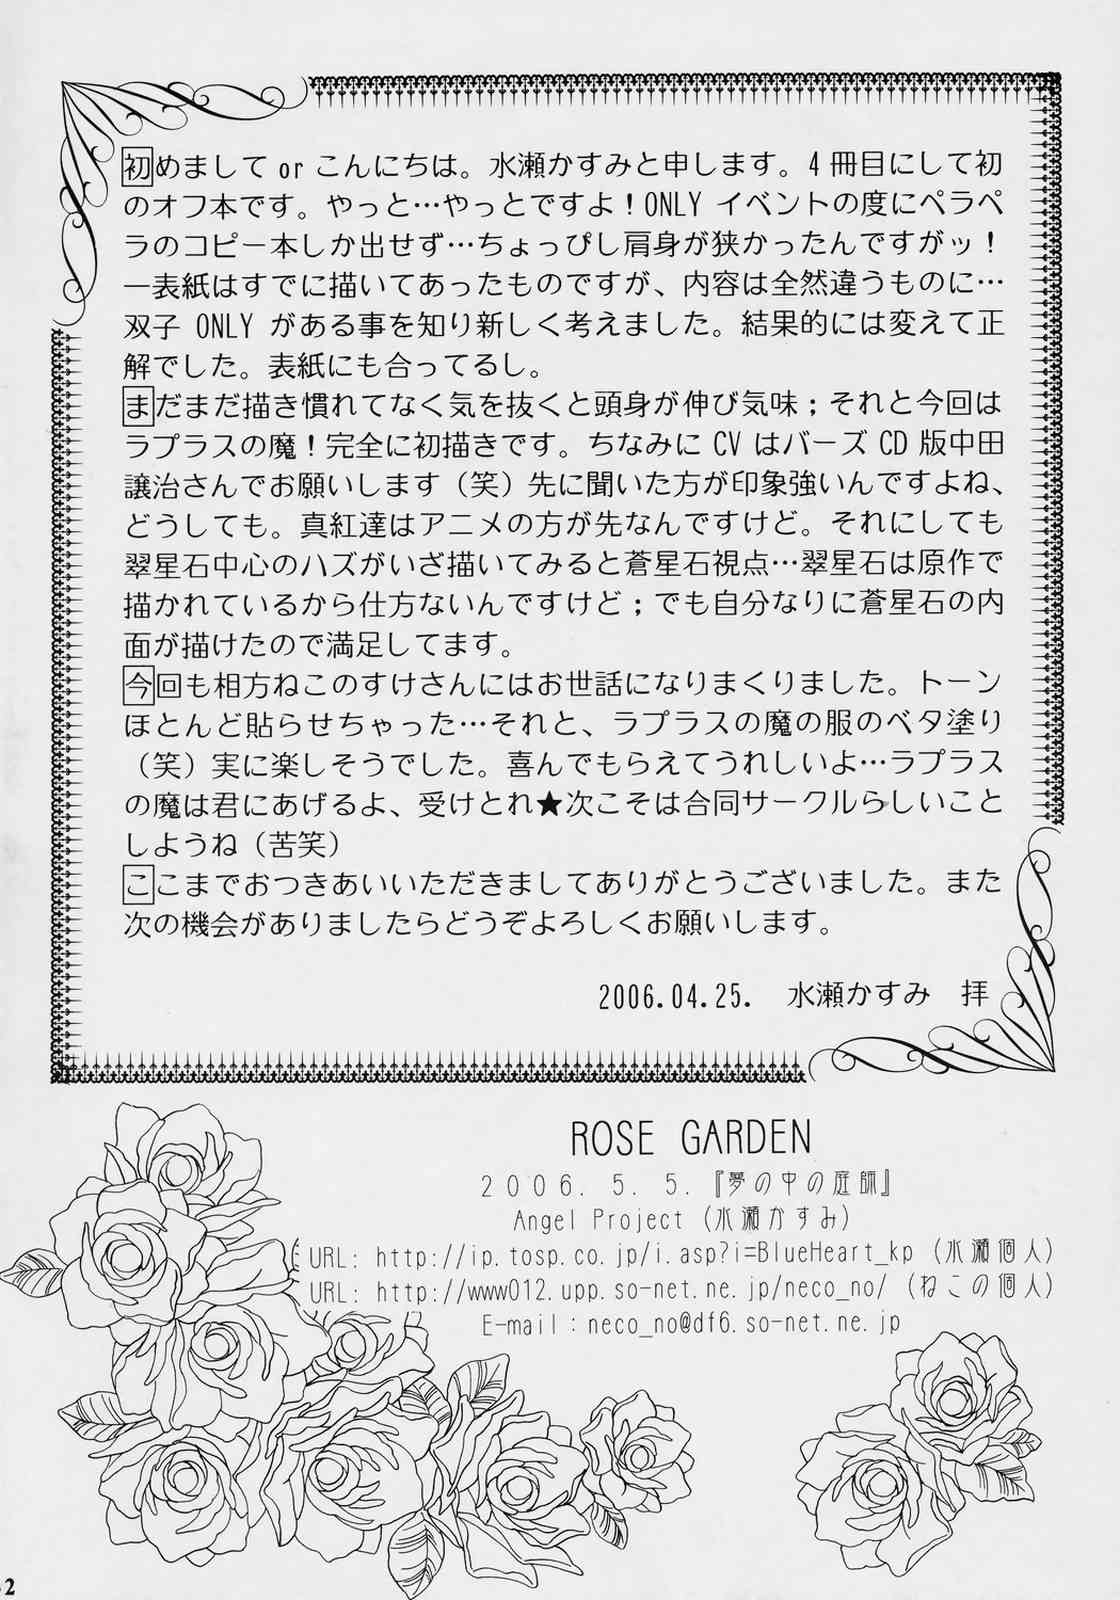 初めまして or こんにちは。水瀬かすみと申します。4 冊目にして初
のオフ本です。やっと…やっとですよ！ONLY イベントの度にペラペ
ラのコピー本しか出せず…ちょっぴし肩身が狭かったんですがッ！
一表紙はすでに描いてあったものですが、内容は全然違うものに…
双子 ONLY がある事を知り新しく考えました。結果的には変えて正
解でした。表紙にも合ってるし。
まだまだ描き慣れてなく気を抜くと頭身が伸び気味；それと今回は
ラプラスの魔！完全に初描きです。ちなみに CV はバーズ CD 版中田
譲治さんでお願いします（笑）先に聞いた方が印象強いんですよね、
どうしても。真紅達はアニメの方が先なんですけど。それにしても
翠星石中心のハズがいざ描いてみると蒼星石視点…翠星石は原作で
描かれているから仕方ないんですけど；でも自分なりに蒼星石の内
面が描けたので満足してます。
今回も相方ねこのすけさんにはお世話になりまくりました。トーン
ほとんど貼らせちゃった…それと、ラプラスの魔の服のベタ塗り
（笑）実に楽しそうでした。喜んでもらえてうれしいよ…ラプラス
の魔は君にあげるよ、受けとれ★次こそは合同サークルらしいこと
しようね（苦笑）
ここまでおつきあいいただきましてありがとうございました。また
次の機会がありましたらどうぞよろしくお願いします。
2006.04.25. 水瀬かすみ 拝
ROSE GARDEN
2006. 5. 5.『夢の中の庭師』
Angel Project (水瀬かすみ)
URL: http://ip.tosp.co.jp/i.asp?i=BlueHeart_kp (水瀬個人)
URL: http://www012.upp.so-net.ne.jp/neco_no/ (ねこの個人)
E-mail：neco_no@df6.so-net.ne.jp